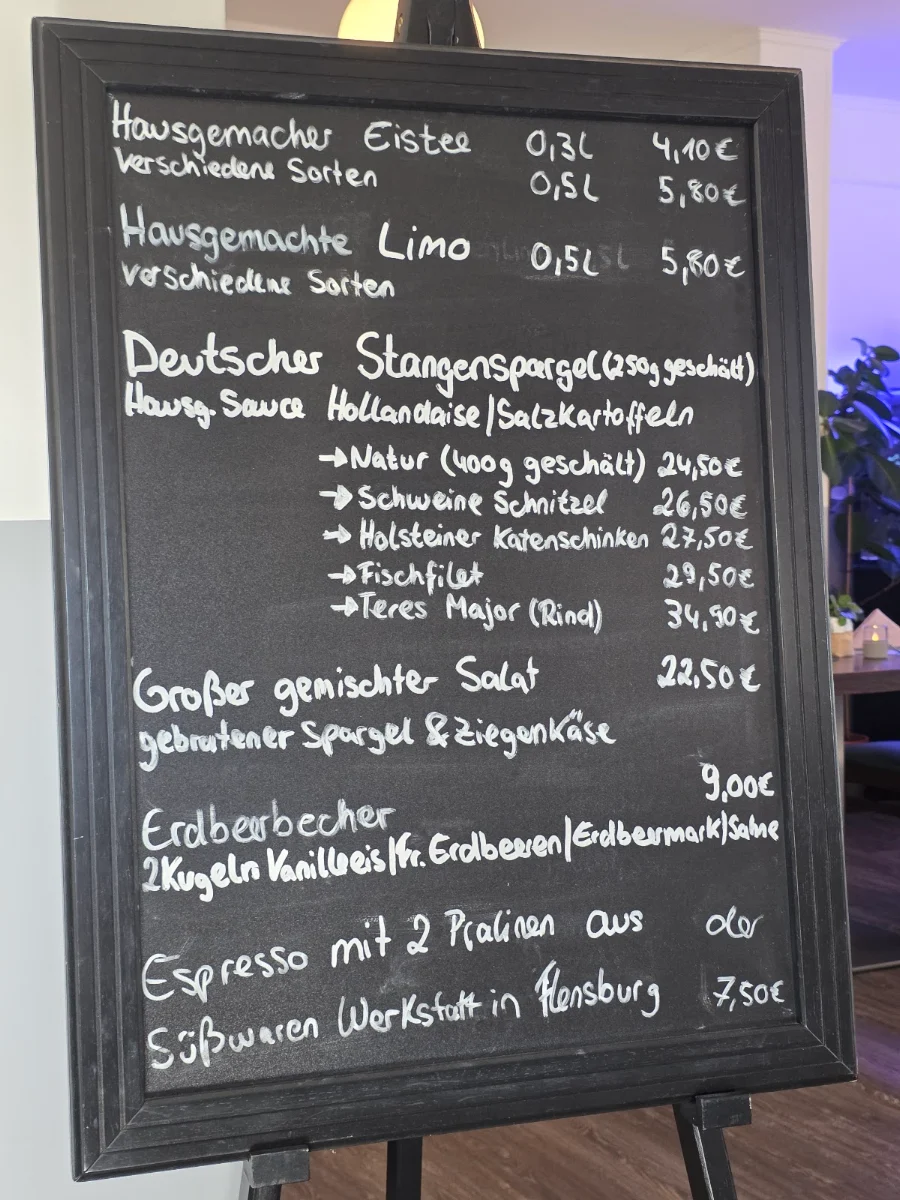 Hausgemacher Eistee 0,3L 4,10€
verschiedene Sorten 0,5L 5,80€
Hausgemachte Limo 0,5L 5,80€
verschiedene Sorten
Deutscher Stangenspargel (250g geschält)
Hausg. Sauce Hollandaise/Salzkartoffeln
→ Natur (400g geschält) 24,50€
→ Schweine Schnitzel 26,50€
→ Holsteiner Katenschinken 27,50€
→ Fischfilet 29,50€
→ Teres Major (Rind) 34,90€
Großer gemischter Salat 22,50€
gebratener Spargel & Ziegenkäse
9,00€
Erdbeerbecher
2Kugeln Vanilleeis/fr. Erdbeeren/Erdbeermark/Sahne
Espresso mit 2 Pralinen aus der
Süßwaren Werkstatt in Flensburg 7,50€